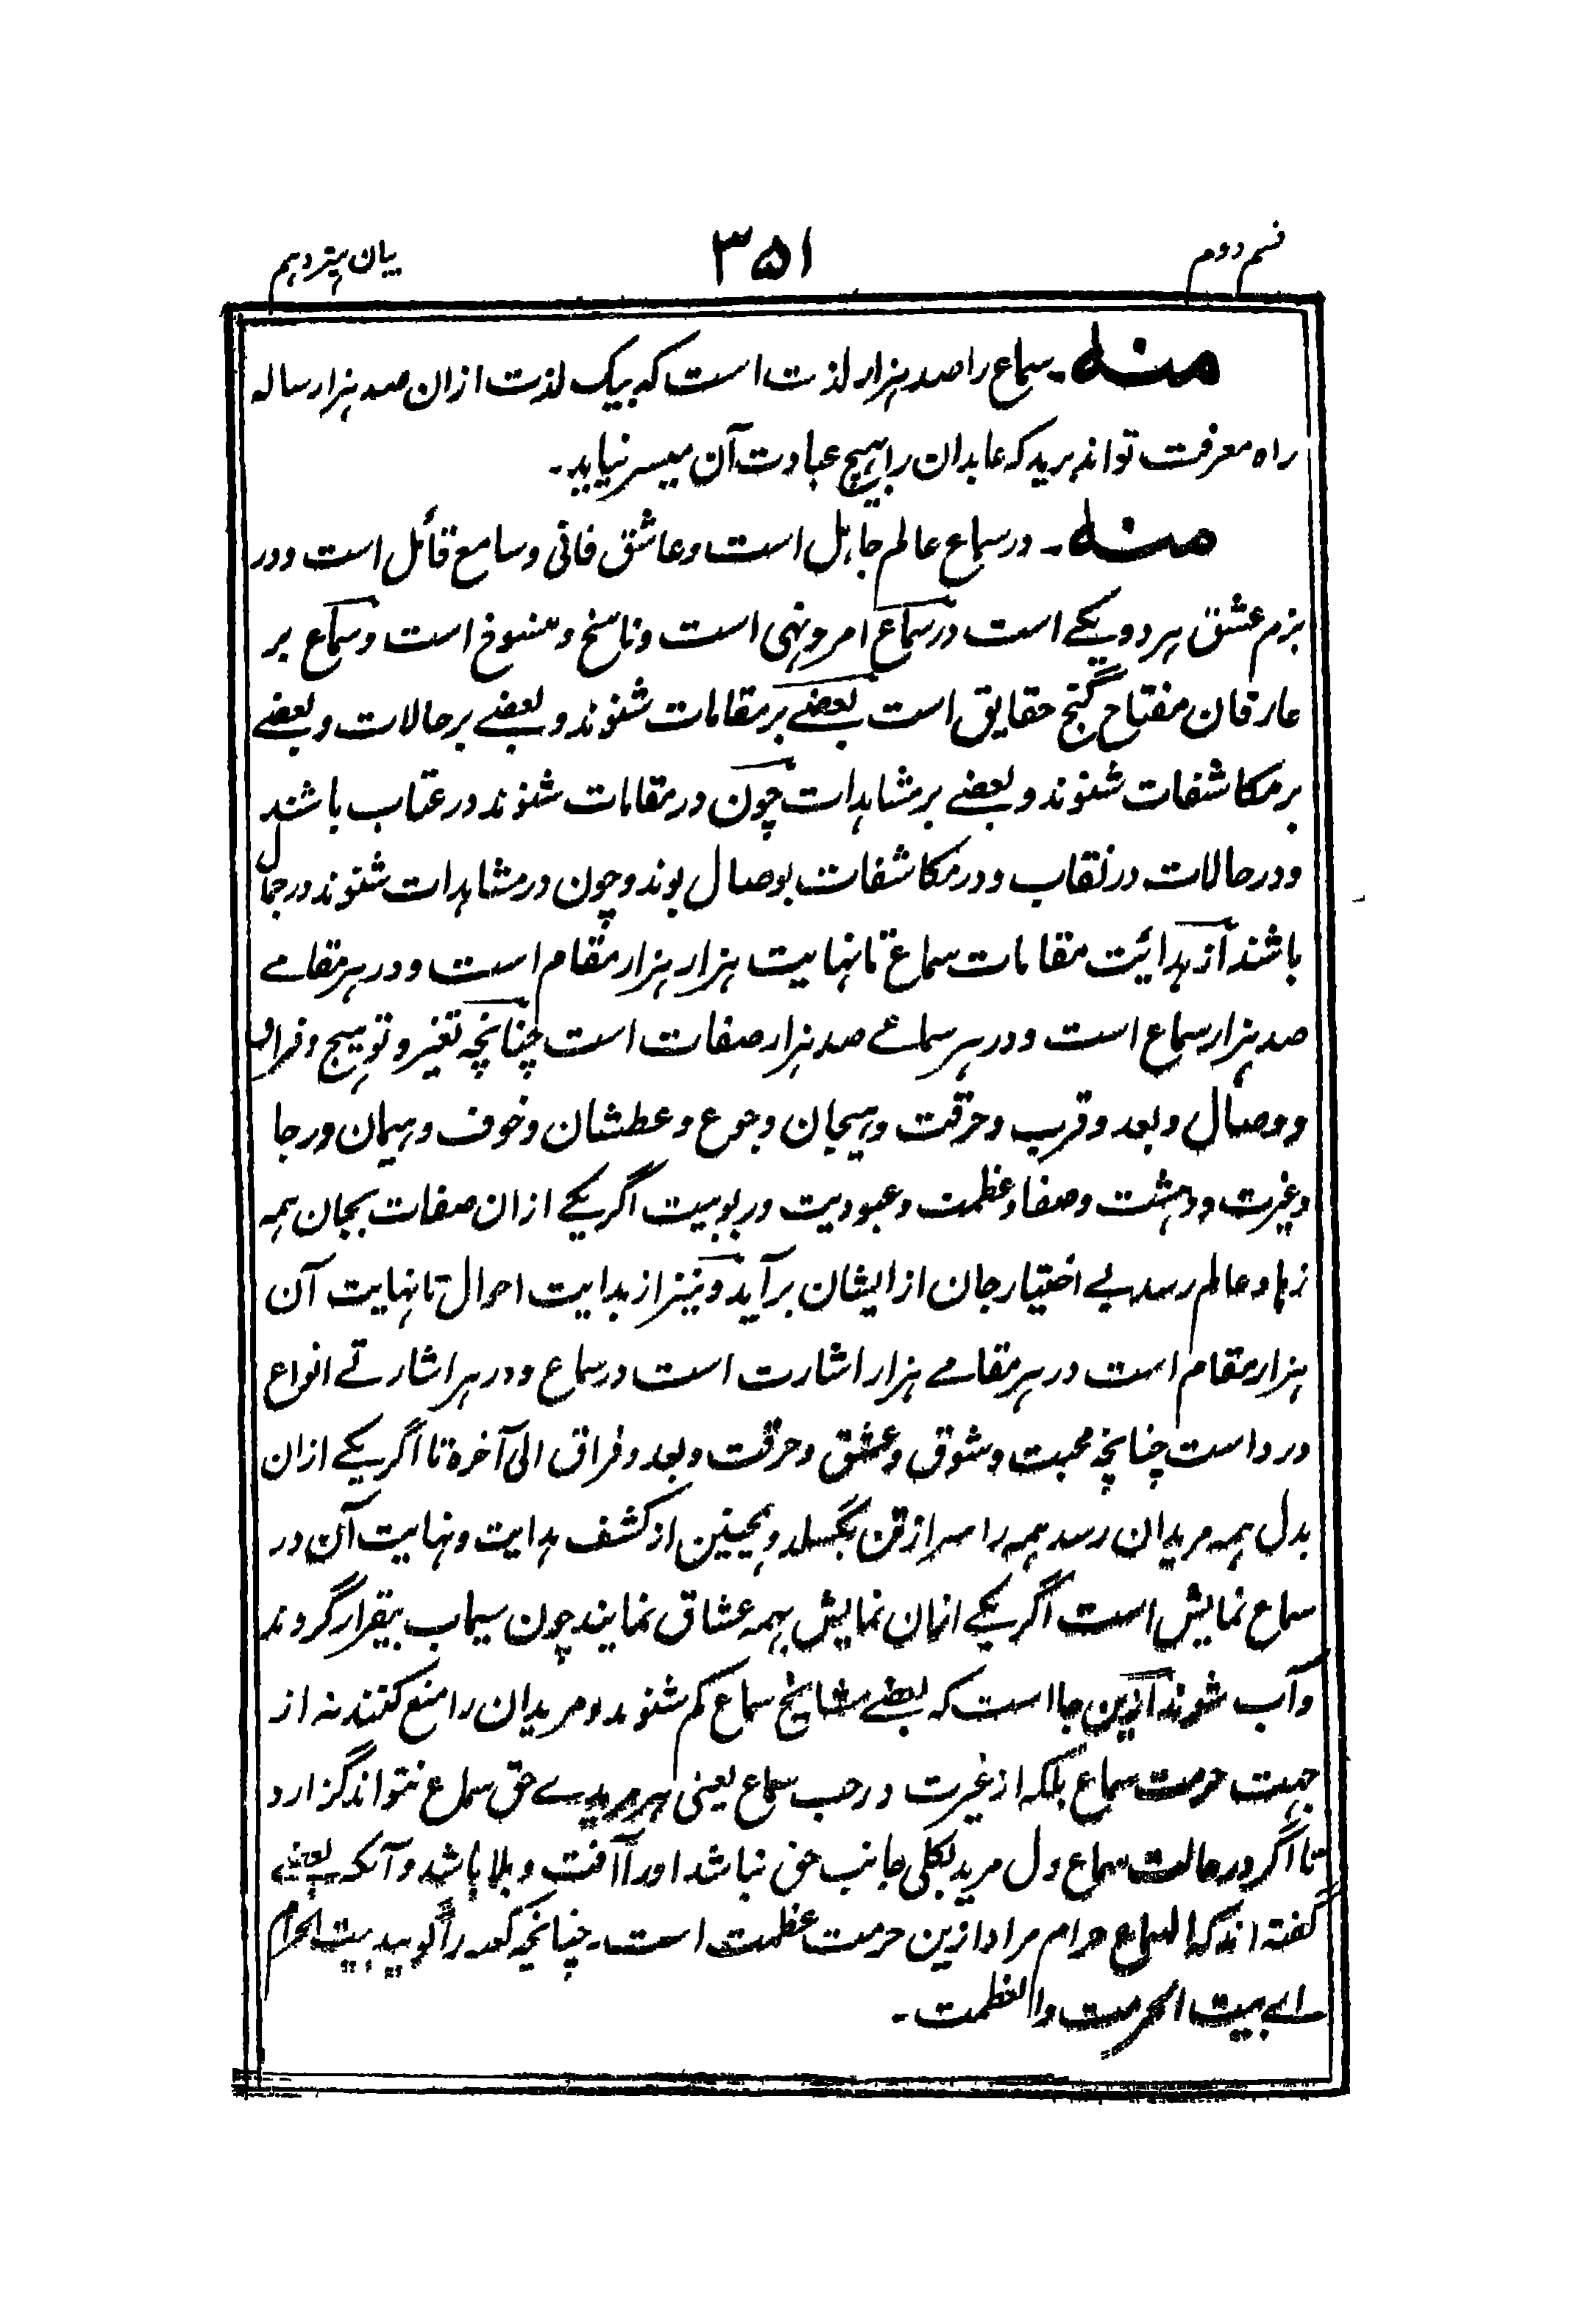 قسم دوم
۳۵۱
بیان ہیزدہم
منہ۔ سماع را صد ہزار لذت است کہ بیک لذت ازان صد ہزار سالہ
راہ معرفت تواند برید کہ عابدان را بہیچ عبادت آن میسر نیاید۔
منہ۔ در سماع عالم جاہل است و عاشق فانی و سامع قائل است و در
بزم عشق ہر دو یکے است در سماع امر و نہی است و ناسخ و منسوخ است و سماع بر
عارفان مفتاح گنج حقایق است بعضے بر مقامات شنوند و بعضے بر حالات و بعضے
بر مکاشفات شنوند و بعضے بر مشاہدات چون در مقامات شنوند در عتاب باشند
و در حالات در نقاب و در مکاشفات بوصال بوند و چون در مشاہدات شنوند در جمال
باشند از بدائیت مقامات سماع تا نہایت ہزار ہزار مقام است و در ہر مقامے
صد ہزار سماع است و در ہر سماعے صد ہزار صفات است چنانچہ تغیر و توہیج و فراق
و وصال و بعد و قرب و حرقت و ہیجان و جوع و عطشان و خوف و ہیمان و رجا
و غیرت و دہشت و صفا و عظمت و عبودیت و ربوبیت اگر یکے ازان صفات بجان ہمہ
زہاد عالم رسد بے اختیار جان از ایشان برآید و نیز از بدایت احوال تا نہایت آن
ہزار مقام است در ہر مقامے ہزار اشارت است در سماع و در ہر اشارتے انواع
درد است چنانچہ محبت و شوق و عشق و حرقت و بعد و فراق الی آخرہ تا اگر یکے ازان
بدل ہمہ مریدان رسد ہمہ را سر از تن بگسلد و ہمچنین از کشف بدایت و نہایت آن در
سماع نمایش است اگر یکے ازان نمایش بہمہ عشاق نمایند چون سیماب بیقرار گردند
و آب شوند ازین جا است کہ بعضے مشایخ سماع کم شنوند و مریدان را منع کنند نہ از
جہت حرمت سماع بلکہ از غیرت در حب سماع یعنی ہر مریدے حق سماع نتواند گزارد
تا اگر در حالت سماع دل مرید بکلی جانب حق نباشد اورا آفت و بلا باشد و آنکہ بعضے
گفتہ اند کہ السماع حرام مراد ازین حرمت عظمت است۔ چنانچہ کعبہ را گویند بیت الحرام
اے بیت الحرمت والعظمت۔